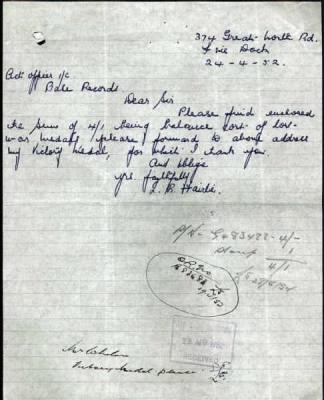 374 Great North Rd.
Five Dock
24-4-52.
Act officer i/c
Base Records.
Dear Sir
Please find enclosed
the sum of 4/1 being balance cost of lost
war medal, please forward to above address
my Victory medal, for which I thank you.
And oblige
yrs. faithfully
P/N- 483422 - 4/-
Stamp 1
4/1
Victory Medal please